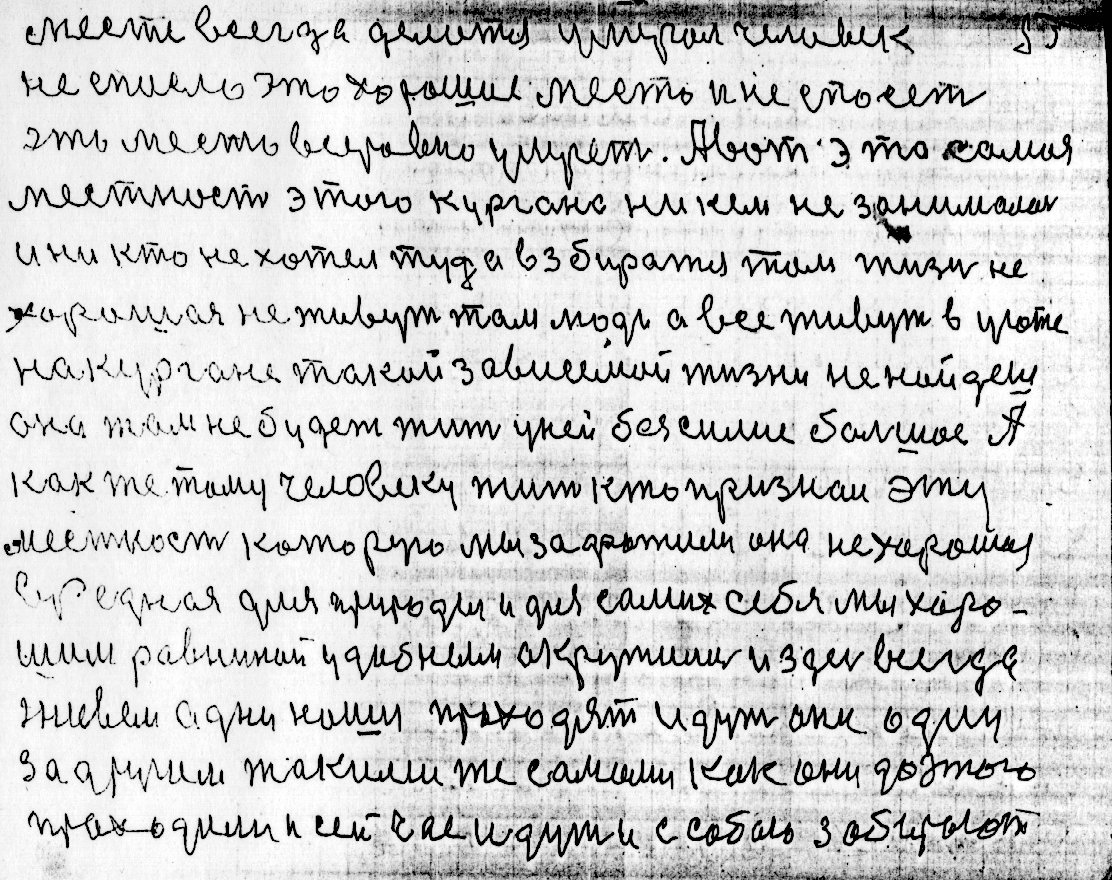 месте всегда делотся умирал человек 55
не спасло это хорошие место и не спосет
эть место всеровно умрет. А вот это самая
местност этого кургана никем не занималас
и ни кто не хотел туда взбиратя там жизн не
хорошая не живут там люди а все живут в уюте
на кургане такой зависемой жизни не найдеш
она там не будет жит у ней безсилие болшое А
как же тому человеку жит кто признал эту
местност которую мы заражили она не хорошая
вредная для природы и для самих себя мы хоро-
шим равниной удобнем акружили и здес всегда
живем а дни наши проходят идут они один
за другим такими же самыми как они до этого
праходили и сейчас идут и с собою забирают